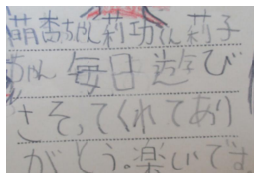 萌杏ちゃん莉功くん莉子
ちゃん毎日遊び
さそってくれてあり
がとう。楽しいです